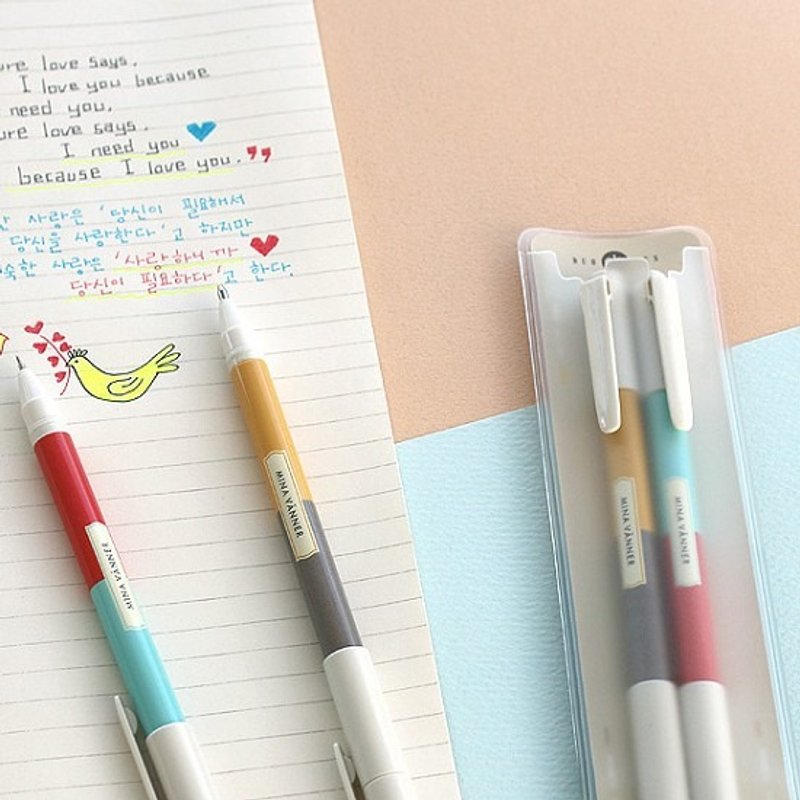 love says.
I love you because
need you,
love says.
I need you
because I love you."
사랑은 '당신이 필요해서
당신을 사랑한다'고 하지만
숙한 사랑은 '사랑하니까
당신이 필요하다'고 한다.
MINA VÄNNER
MINA VÄNNER
MINA VÄNNER
MINA VÄNNER